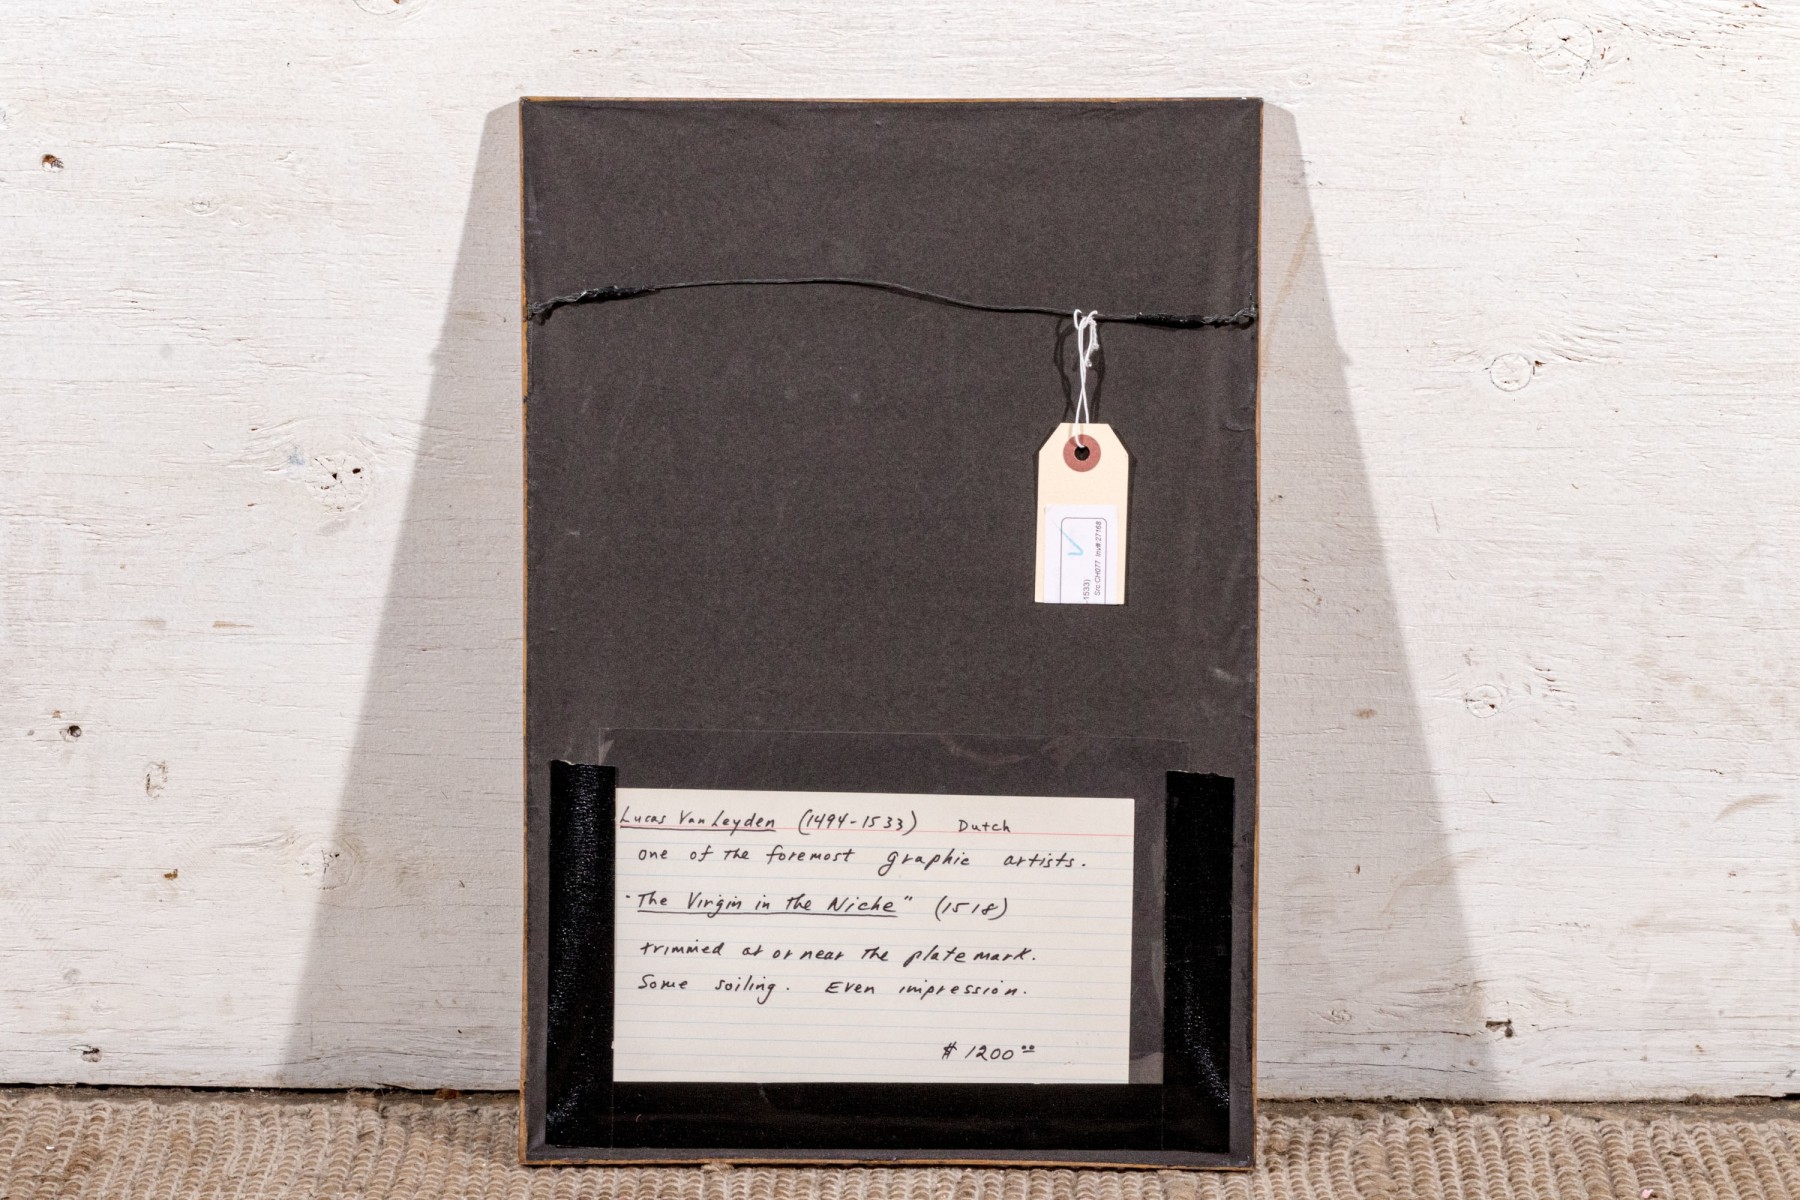 -1533)
Src:CH077 inv#:27168
Lucas Van Leyden (1494-1533) Dutch
one of the foremost graphic artists.
"The Virgin in the Niche" (1518)
trimmed at or near the plate mark.
Some soiling. Even impression.
$ 1200 00